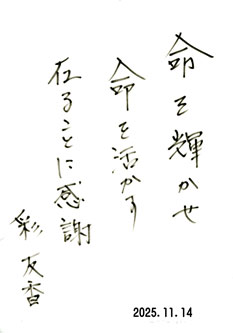 命を輝かせ
命を活かす
在ることに感謝
彩友香
2025.11.14